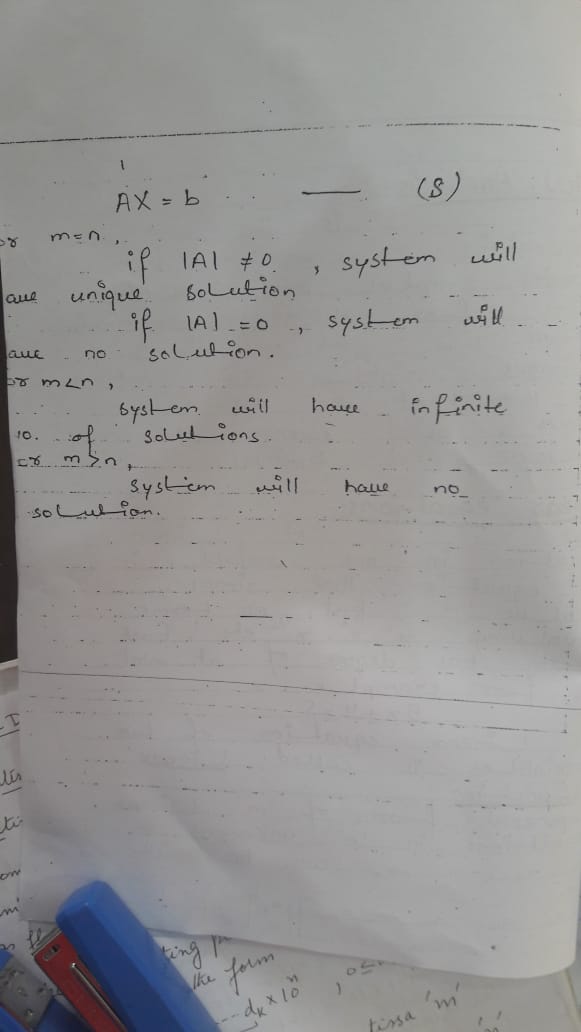 AX = b — (S)
or m=n,
if |A| ≠ 0, system will
ave unique solution
if |A| = 0, system will
ave no solution.
or m<n,
system will have infinite
no. of solutions.
or m>n,
system will have no
solution.
ting
the form
dₖ × 10ⁿ
tissa 'm'